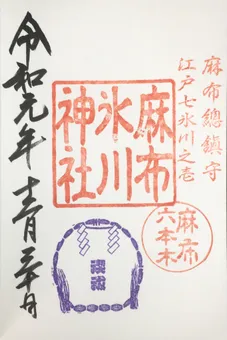 麻布總鎮守
江戸七氷川之壱
麻布
氷川
神社
麻布
六本木
令和元年十二月三十日